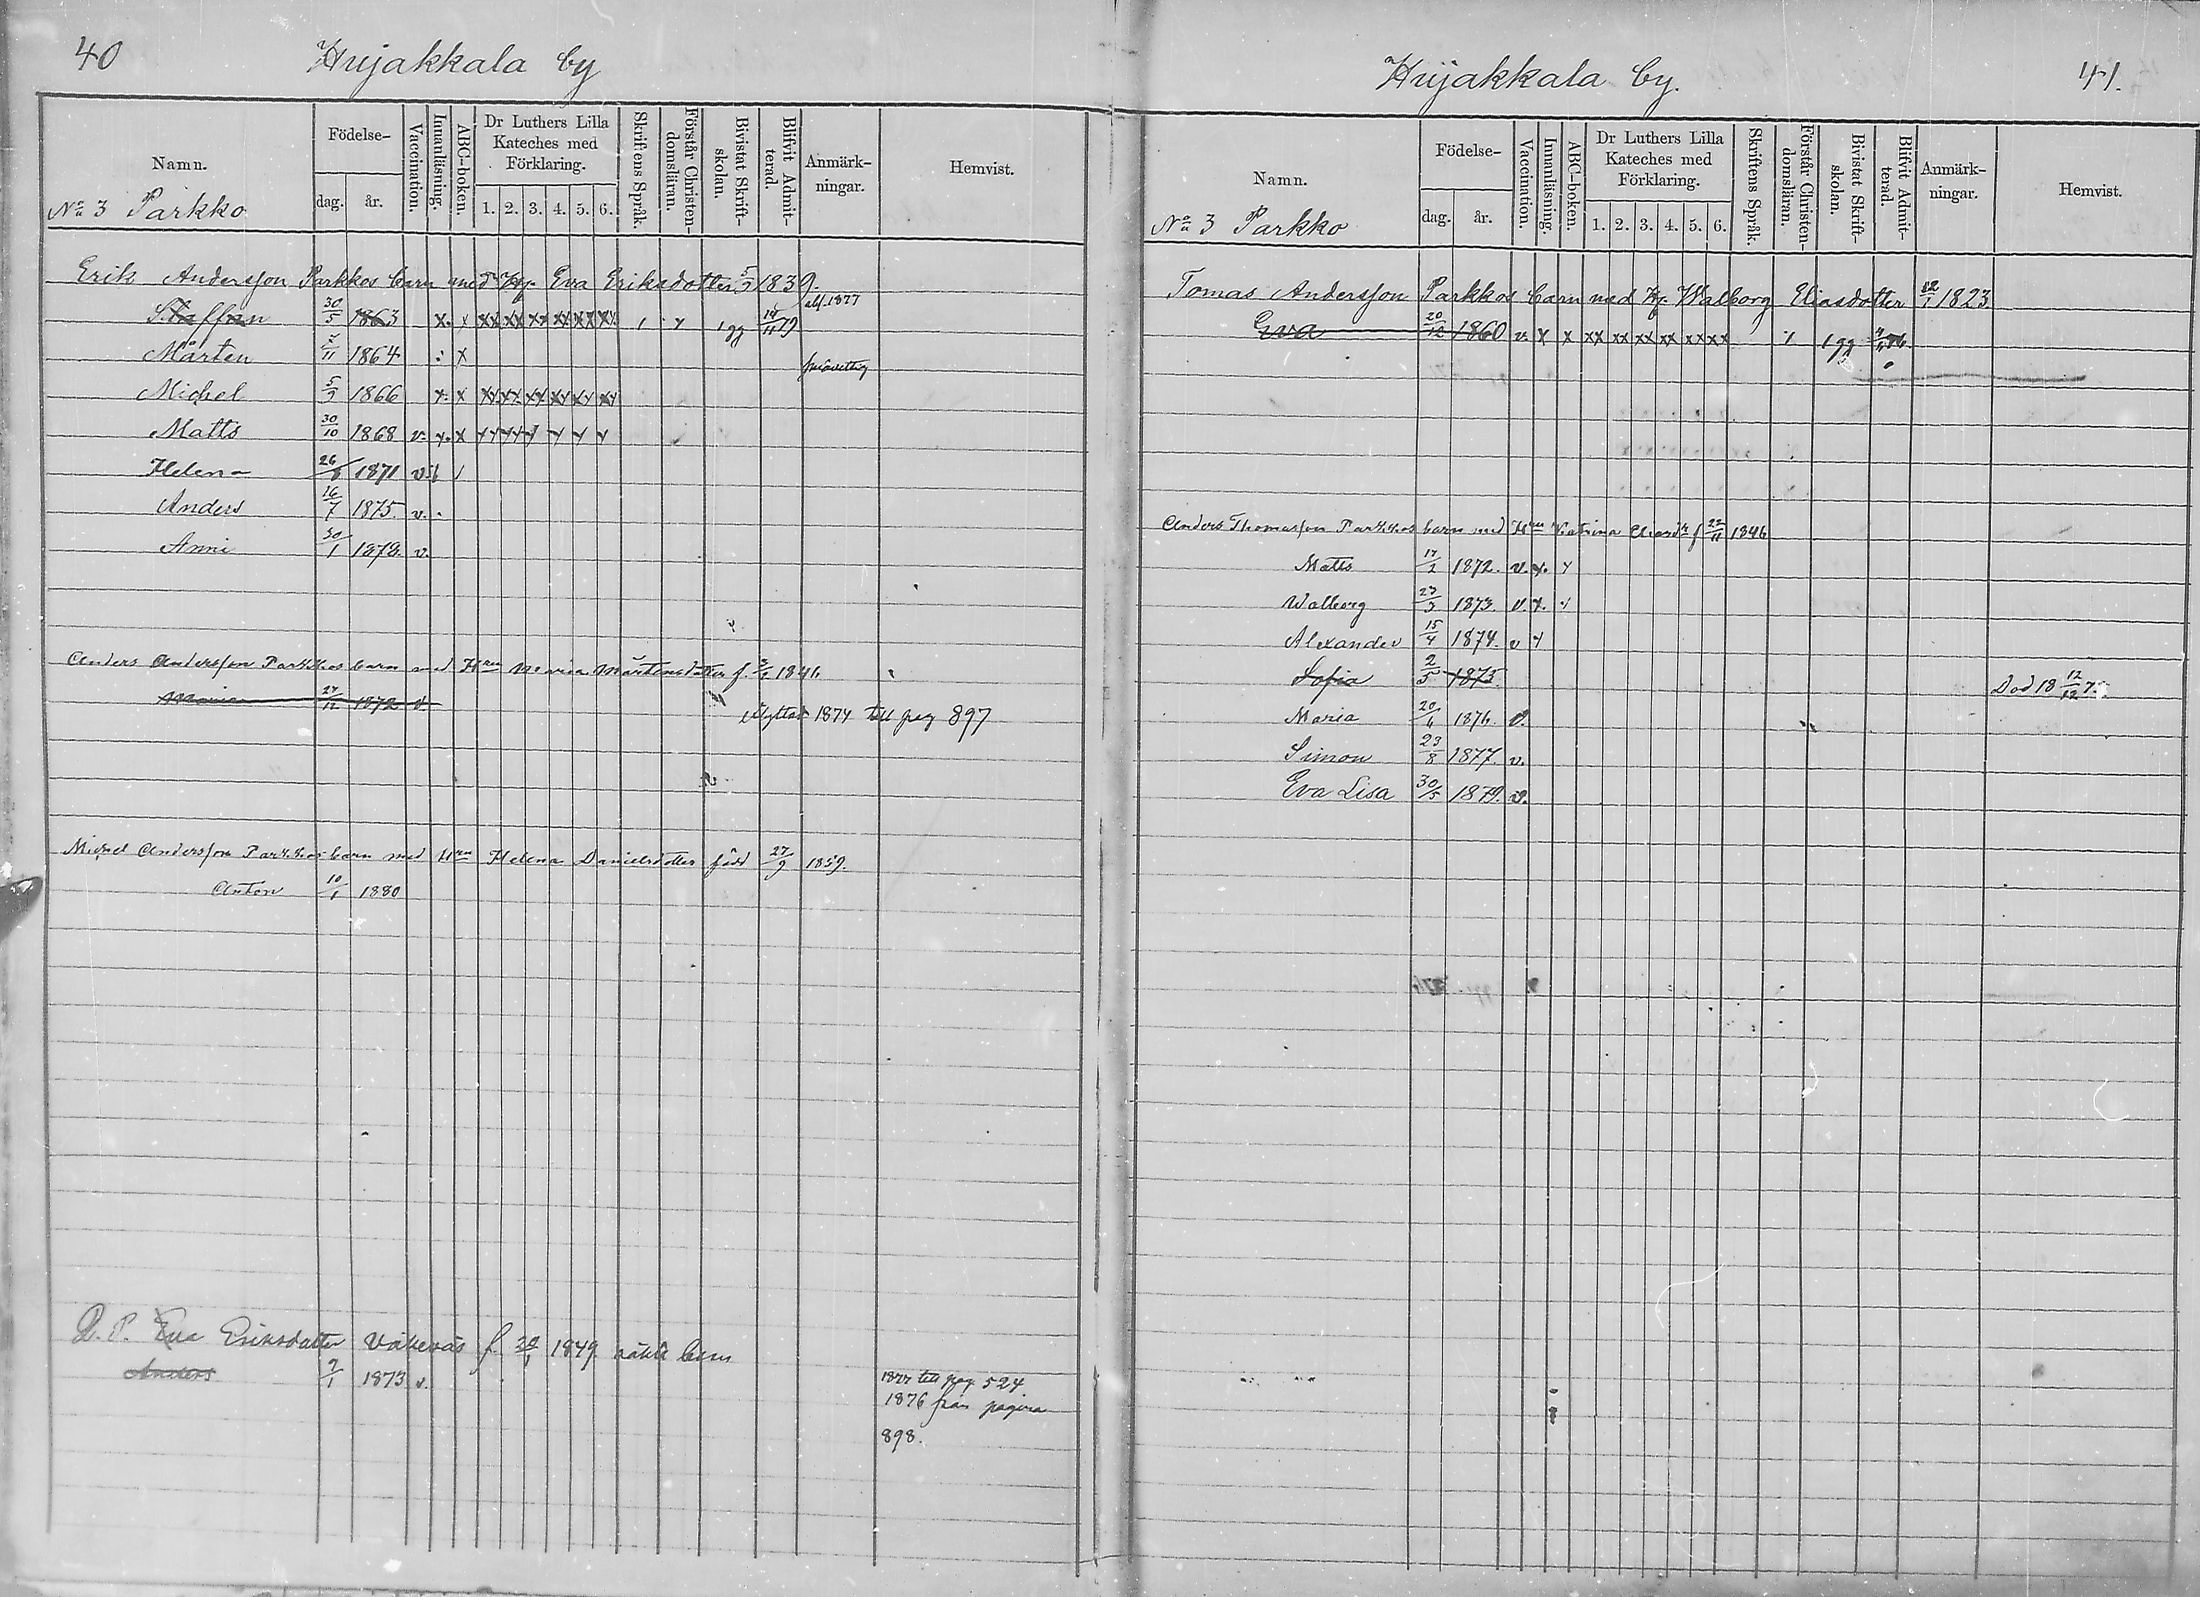 40 Hujakkala by
Namn. Födelse- Vaccination. Innanläsning. ABC-boken. Dr Luthers Lilla Kateches med Förklaring. Skriftens Språk. Förstår Christen-domsläran. Bivistat Skrift-skolan. Blifvit Admit-terad. Anmärk-ningar. Hemvist.
dag. år. 1. 2. 3. 4. 5. 6.
No 3 Parkko
Erik Andersson Parkkos barn med H. Eva Eriksdotter 5/7 1839.
Staffan 30/5 1863 x. x xx xx xx xx xx xx 1 gg 14/11 79 1877
Mårten 1864 x
Michel 1866 x x xx xx xx xx xx xx
Matts 30/10 1868 v. x. x
Helena 26/8 1871 v.
Anders 16/7 1875 v.
Anni 30/1 1878. v.
Anders Andersson Parkkos barn med Hru Maria Mårtensdotter f. 1846
Maria 27/12 1872 v. flyttat 1874 till pag 897
Michel Andersson Parkkos barn med Hru Helena Danielsdotter född 27/9 1859.
Anton 10/1 1880
Q. P. Eva Eriksdatter f. 1849. barn
Anders 9/1 1873 v. 1877 till pag. 524
1876 från pagina
898.
Hujakkala by. 41.
Namn. Födelse- Vaccination. Innanläsning. ABC-boken. Dr Luthers Lilla Kateches med Förklaring. Skriftens Språk. Förstår Christen-domsläran. Bivistat Skrift-skolan. Blifvit Admit-terad. Anmärk-ningar. Hemvist.
dag. år. 1. 2. 3. 4. 5. 6.
No 3 Parkko
Tomas Andersson Parkkos barn med H. Walborg Eliasdotter 1823
Eva 20/12 1860 v. x x xx xx xx xx xx xx 1 gg
Anders Thomasson Parkkos barn med Hru Katrina f 22/11 1846
Matts 17/2 1872. v. x.
Walborg 23/3 1873. v. x.
Alexander 15/4 1874. v
Sofia 2/5 1875. Död 18 12/12 7
Maria 1876. v.
Simon 23/8 1877. v.
Eva Lisa 30/5 1879. v.